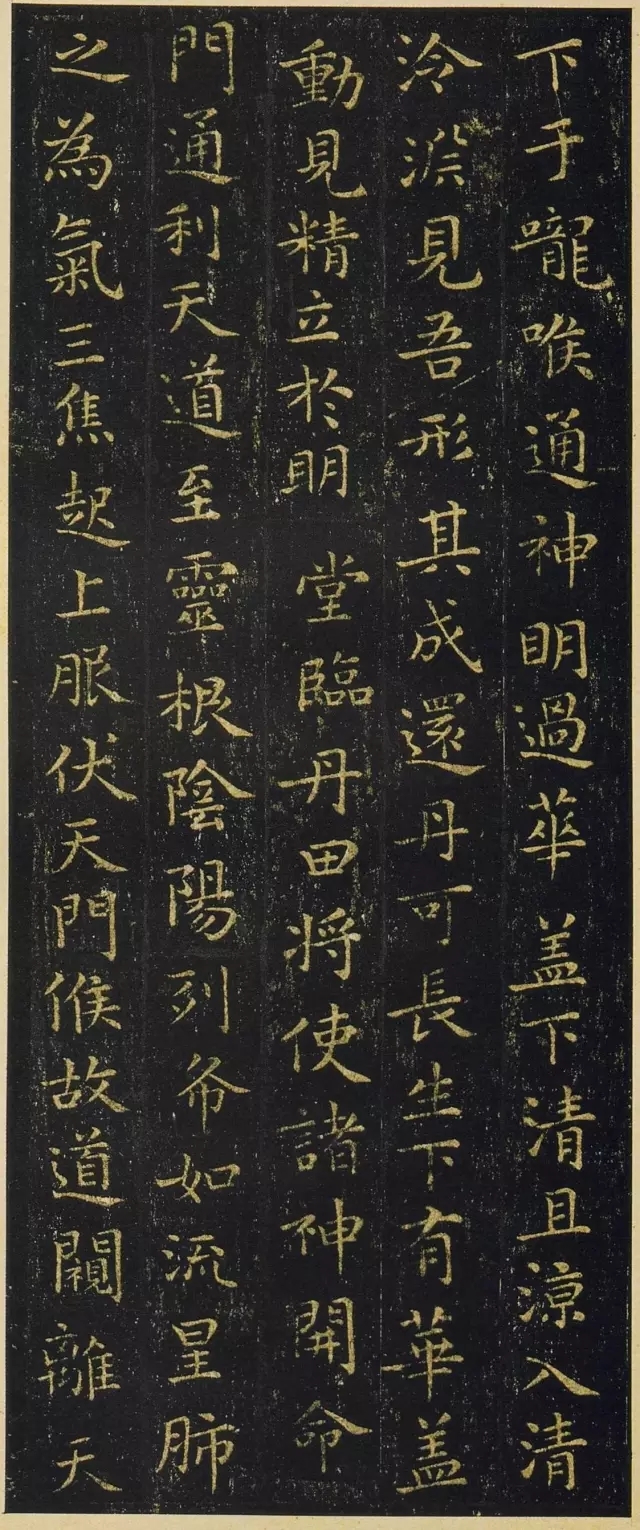 下于嚨喉通神明過華盖下清且涼入清
泠淵見吾形其成還丹可長生下有華盖
動見精立於明堂臨丹田将使諸神開命
門通利天道至靈根陰陽列布如流星肺
之為氣三焦起上服伏天門候故道闚離天